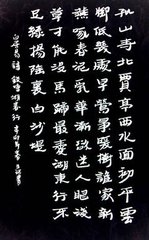 孤山寺北賈亭西水面初平雲
脚低幾處早鶯爭暖樹誰家新
燕啄春泥亂花漸欲迷人眼淺
草才能沒馬蹄最愛湖東行不
足綠楊陰裏白沙堤
白居易詩錢塘湖春行